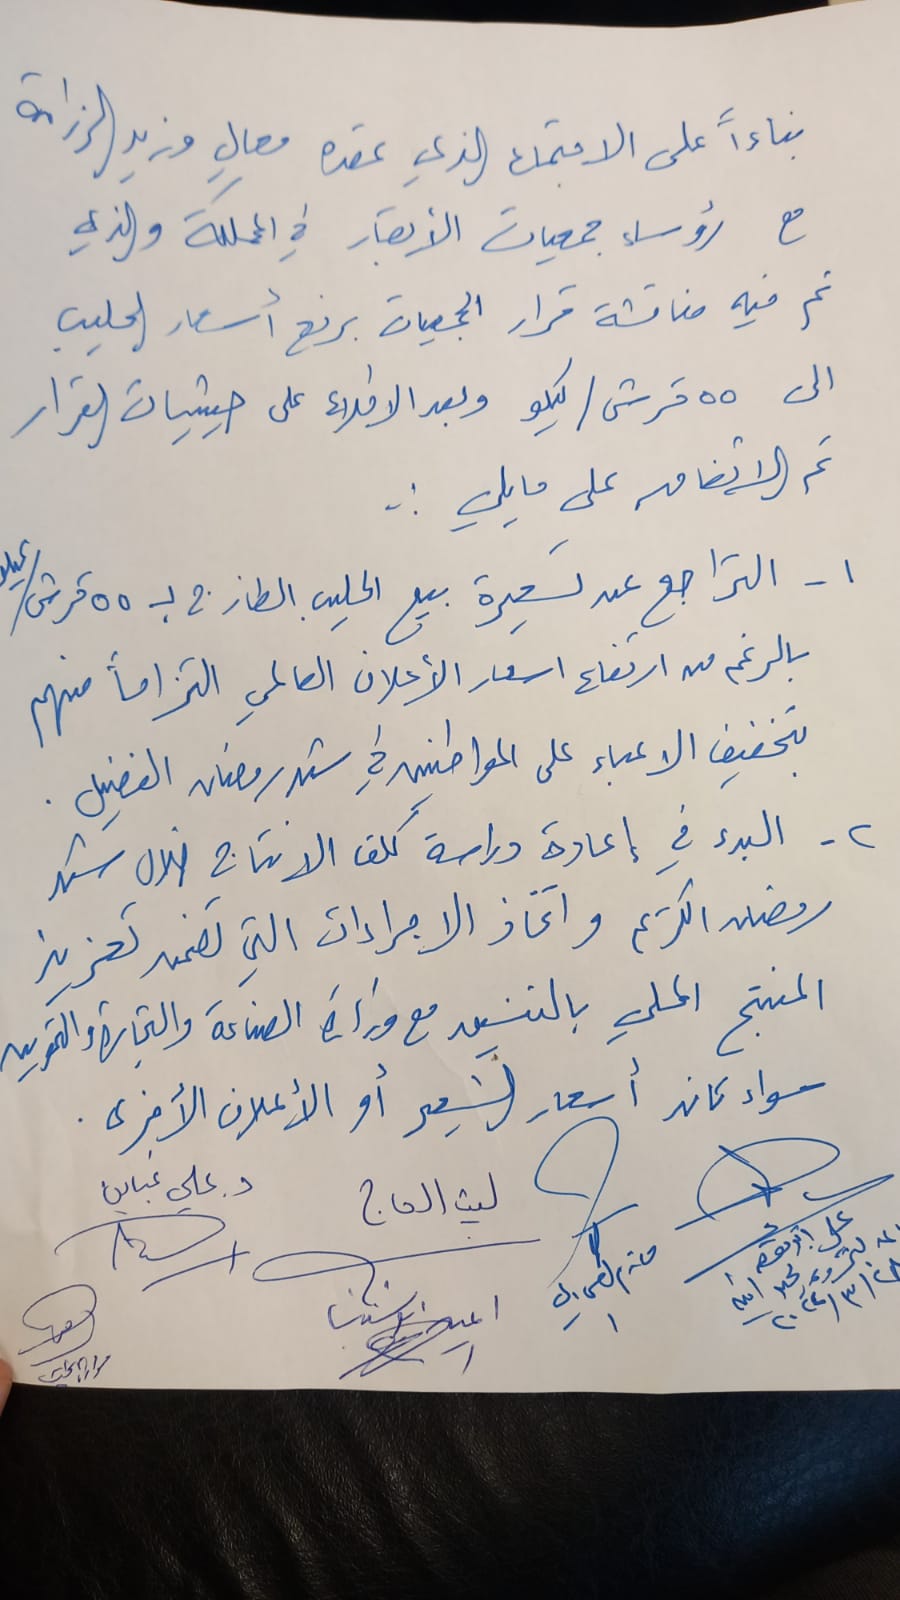 بناءاً على الاجتماع الذي عقده معالي وزير الزراعة
مع رؤساء جمعيات الأبقار في المملكة والذي
تم فيه مناقشة قرار الجمعيات برفع أسعار الحليب
الى ٥٥ قرش/كيلو وبعد الاطلاع على حيثيات القرار
تم الاتفاق على مايلي :-
١- التراجع عن تسعيرة بيع الحليب الطازج بـ ٥٥ قرش/كيلو
بالرغم من ارتفاع اسعار الأعلاف العالمي التزاماً منهم
بتخفيف الاعباء على المواطنين في شهر رمضان الفضيل .
٢- البدء في إعادة دراسة كلف الانتاج خلال شهر
رمضان الكريم و اتخاذ الاجراءات التي تضمن تعزيز
المنتج المحلي بالتنسيق مع وزارة الصناعة والتجارة والتموين
سواء كانت أسعار الشعير أو الأعلاف الأخرى .
د. علي غباين
ليث الحاج